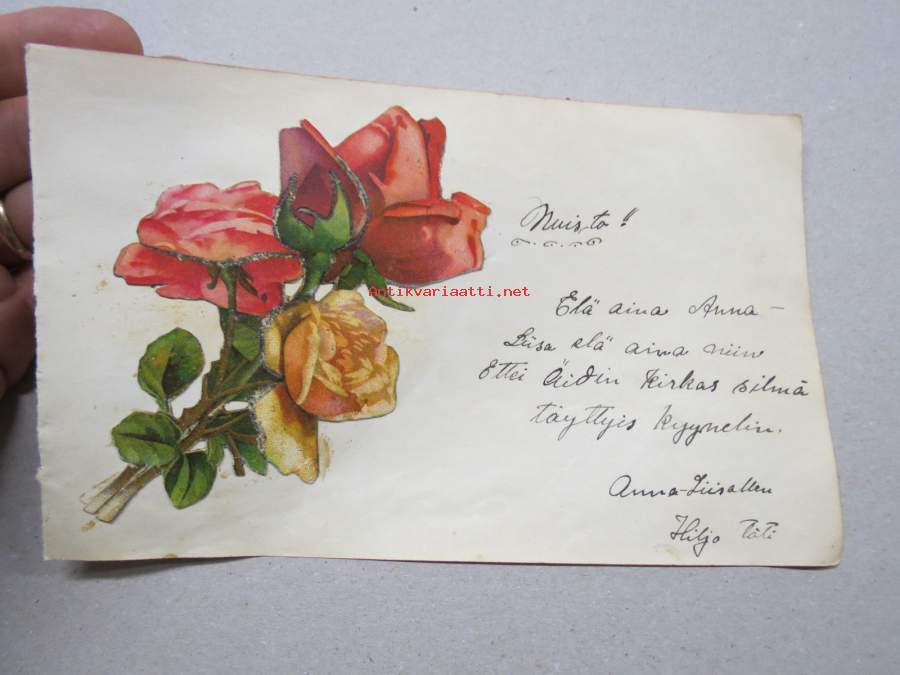 Muisto!!
Antikvariaatti.net
Elä aina Anna-
Liisa elä aina niin
Ettei Äidin kirkas silmä
täyttyis kyynelin.
Anna-Liisallen
Hilja Täti